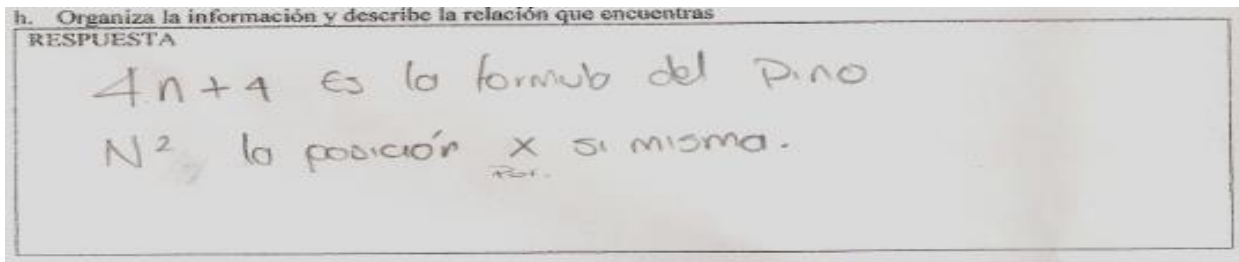 h. Organiza la información y describe la relación que encuentras
RESPUESTA
4n+4 es la formula del Pino
N² la posición x si misma.
Por.